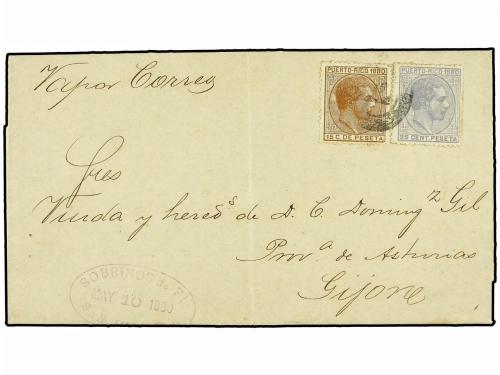 PUERTO-RICO 1880
15 C. DE PESETA
PUERTO-RICO 1880
25 CENT. PESETA
Vapor Correo
Sres
Viuda y hereds de D. C. Domingz Gil
Prova de Asturias
Gijone
SOBRINOS de
MAY 10 1880